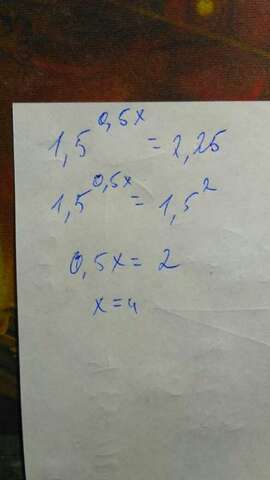 1,5^0,5x = 2,25
1,5^0,5x = 1,5^2
0,5x = 2
x = 4